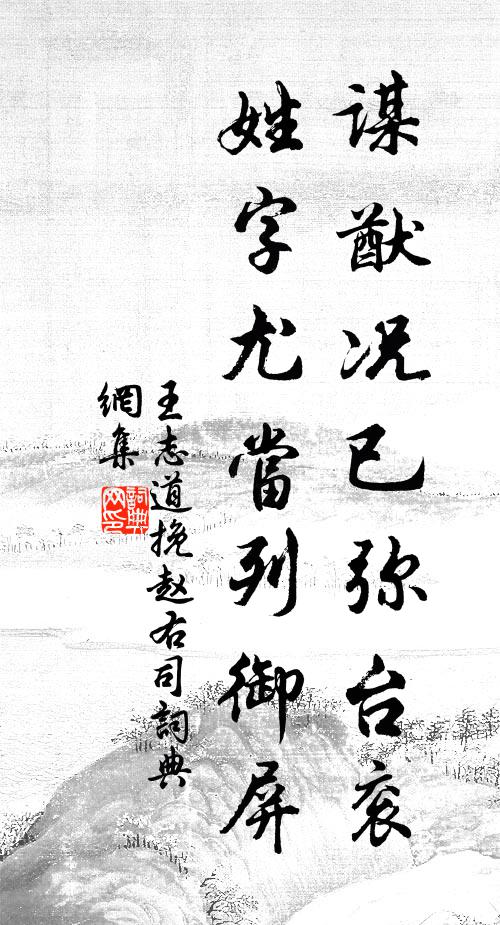 谋猷况已弥台衮
姓字尤當列御屏
王志道挽赵右司詞典
網集
詞典
网印